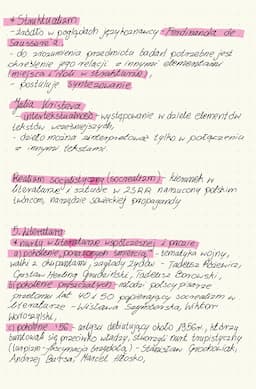 * Strukturalizm
- źródło w poglądach językoznawcy - Ferdinanda de
Saussure'a,
- do zrozumienia przedmiotu badań potrzebne jest
określenie jego relacji z innymi elementami
(miejsca i roli w strukturze),
- postuluje syntezowanie
Julia Kristeva
- intertekstualność - występowanie w dziele elementów
tekstów wcześniejszych,
- dzieło można zinterpretować tylko w połączeniu
z innymi tekstami.
Realizm socjalistyczny (socrealizm) - kierunek w
literaturze i sztuce w ZSRR narzucony polskim
twórcom, narzędzie sowieckiej propagandy
5. Literatura
* nurty w literaturze współczesnej i prozie
a) pokolenie porażonych śmiercią - tematyka wojny,
walki z okupantami, zagłady Żydów - Tadeusz Różewicz,
Gustaw Herling Grudziński, Tadeusz Borowski,
b) pokolenie pryszczatych - młodzi polscy pisarze
przełomu lat 40 i 50 popierający socrealizm w
literaturze - Wisława Szymborska, Wiktor
Woroszylski,
c) pokolenie '56 - artyści debiutujący około 1956r., którzy
buntowali się przeciwko władzy, stworzyli nurt turpistyczny
(turpizm - brzydota) - Stanisław Grochowiak,
Andrzej Bursa, Marek Hłasko,